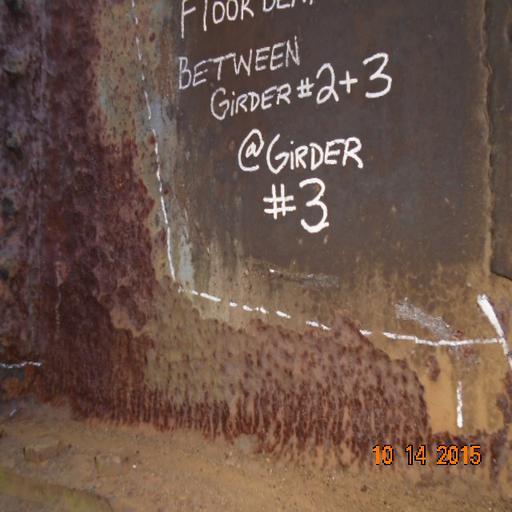 FLOOR
BETWEEN
GIRDER #2+3
@GIRDER
#3
10 14 2015